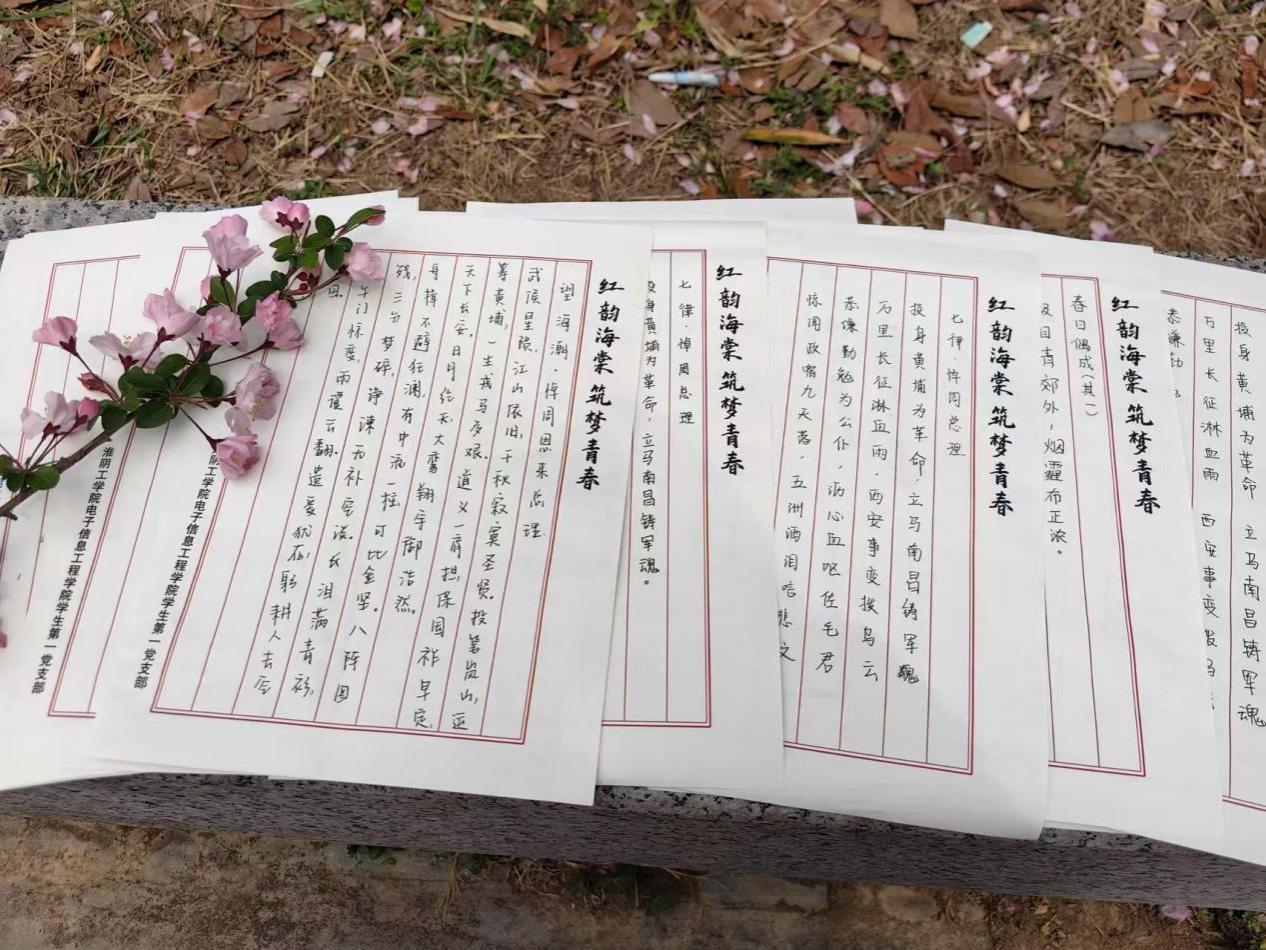 投身黄埔为革命 立马南昌铸军魂
万里长征淋血雨 西安事变拨乌云
恭谦勤
红韵海棠 筑梦青春
春日偶成（其一）
目青郊外，烟霾布正浓。
红韵海棠 筑梦青春
七律·悼周总理
投身黄埔为革命，立马南昌铸军魂
万里长征淋血雨，西安事变拨乌云
恭谦勤勉为公仆，沥心血呕佐毛君
惊闻政宿九天落，五洲洒泪唁悲文
红韵海棠 筑梦青春
七律·悼周总理
投身黄埔为革命，立马南昌铸军魂。
红韵海棠 筑梦青春
望海潮·悼周恩来总理
武侯星陨，江山依旧，千秋寂寞圣贤。投笔岚山，
筹黄埔，一生戎马多艰。道义一肩担。保国祚早定
天下长安。日月经天，大鸾翔宇御浩然。
身撑不避狂澜，有中病一柱，可比金坚。八阵图
残，三分梦碎，净谏为补空谈。长泪满青衫，
午门惊变，雨覆云翻。遗爱犹在，躬耕人去后
阴工学院电子信息工程学院学生第一党支部
淮阴工学院电子信息工程学院学生第一党支部